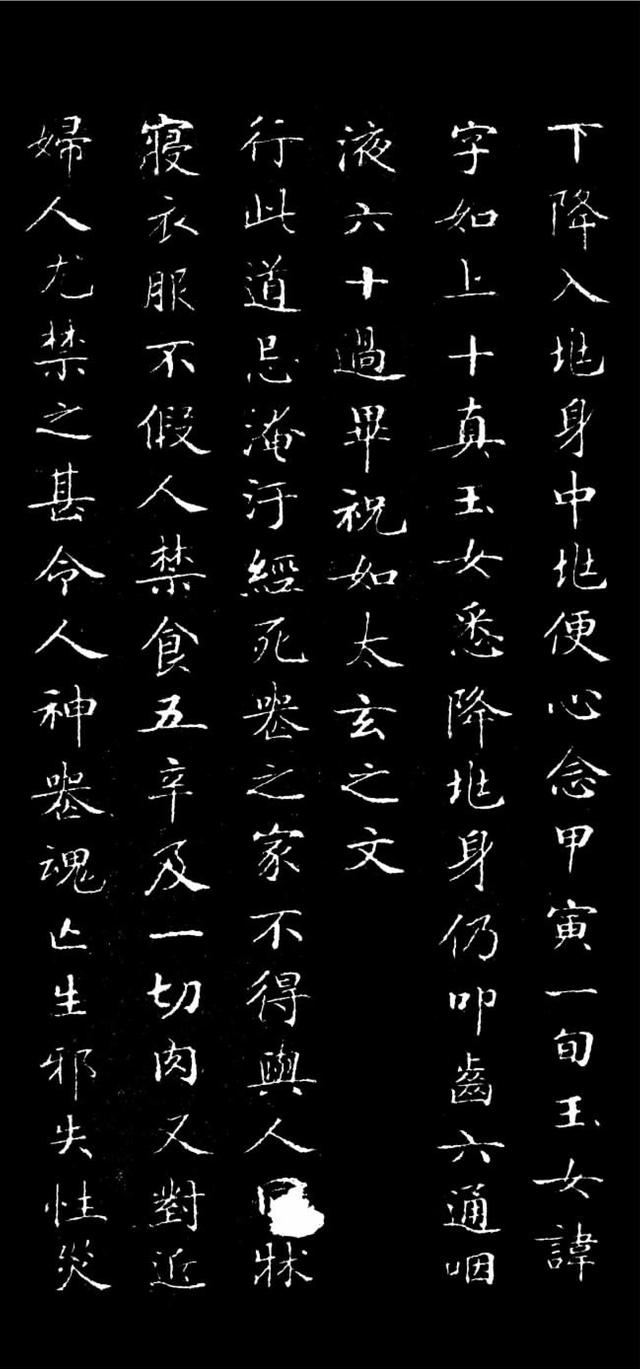 下降入𡉵身中𡉵便心念甲寅一旬玉女諱
字如上十真玉女悉降𡉵身仍叩齒六通咽
液六十過畢祝如太玄之文
行此道忌淹汙經死喪之家不得與人牀
寢衣服不假人禁食五辛及一切肉又對近
婦人尤禁之甚令人神喪魂亡生邪失性災